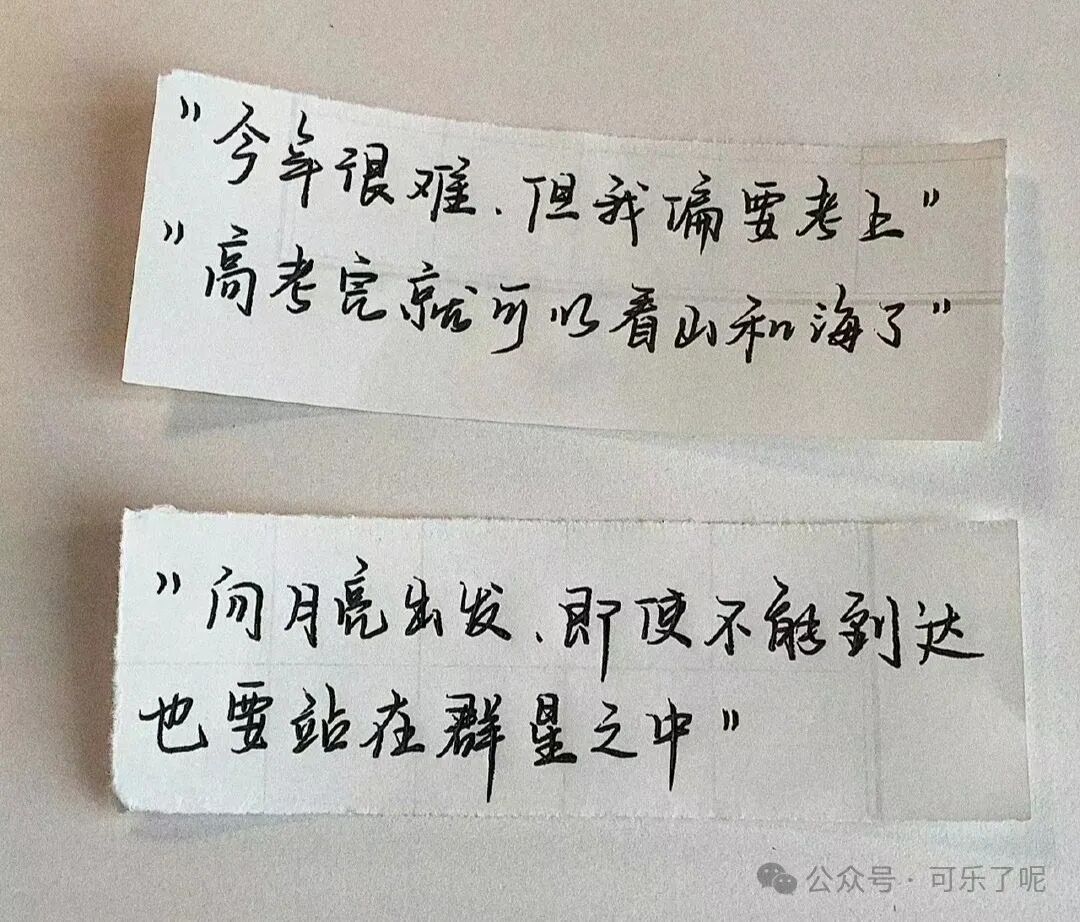 "今年很难、但我偏要考上"
"高考完就可以看山和海了"
"向月亮出发、即使不能到达
也要站在群星之中"
公众号·可乐了呢